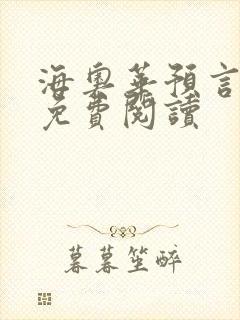 海奧華預言
免費閱讀
暮暮笙醉